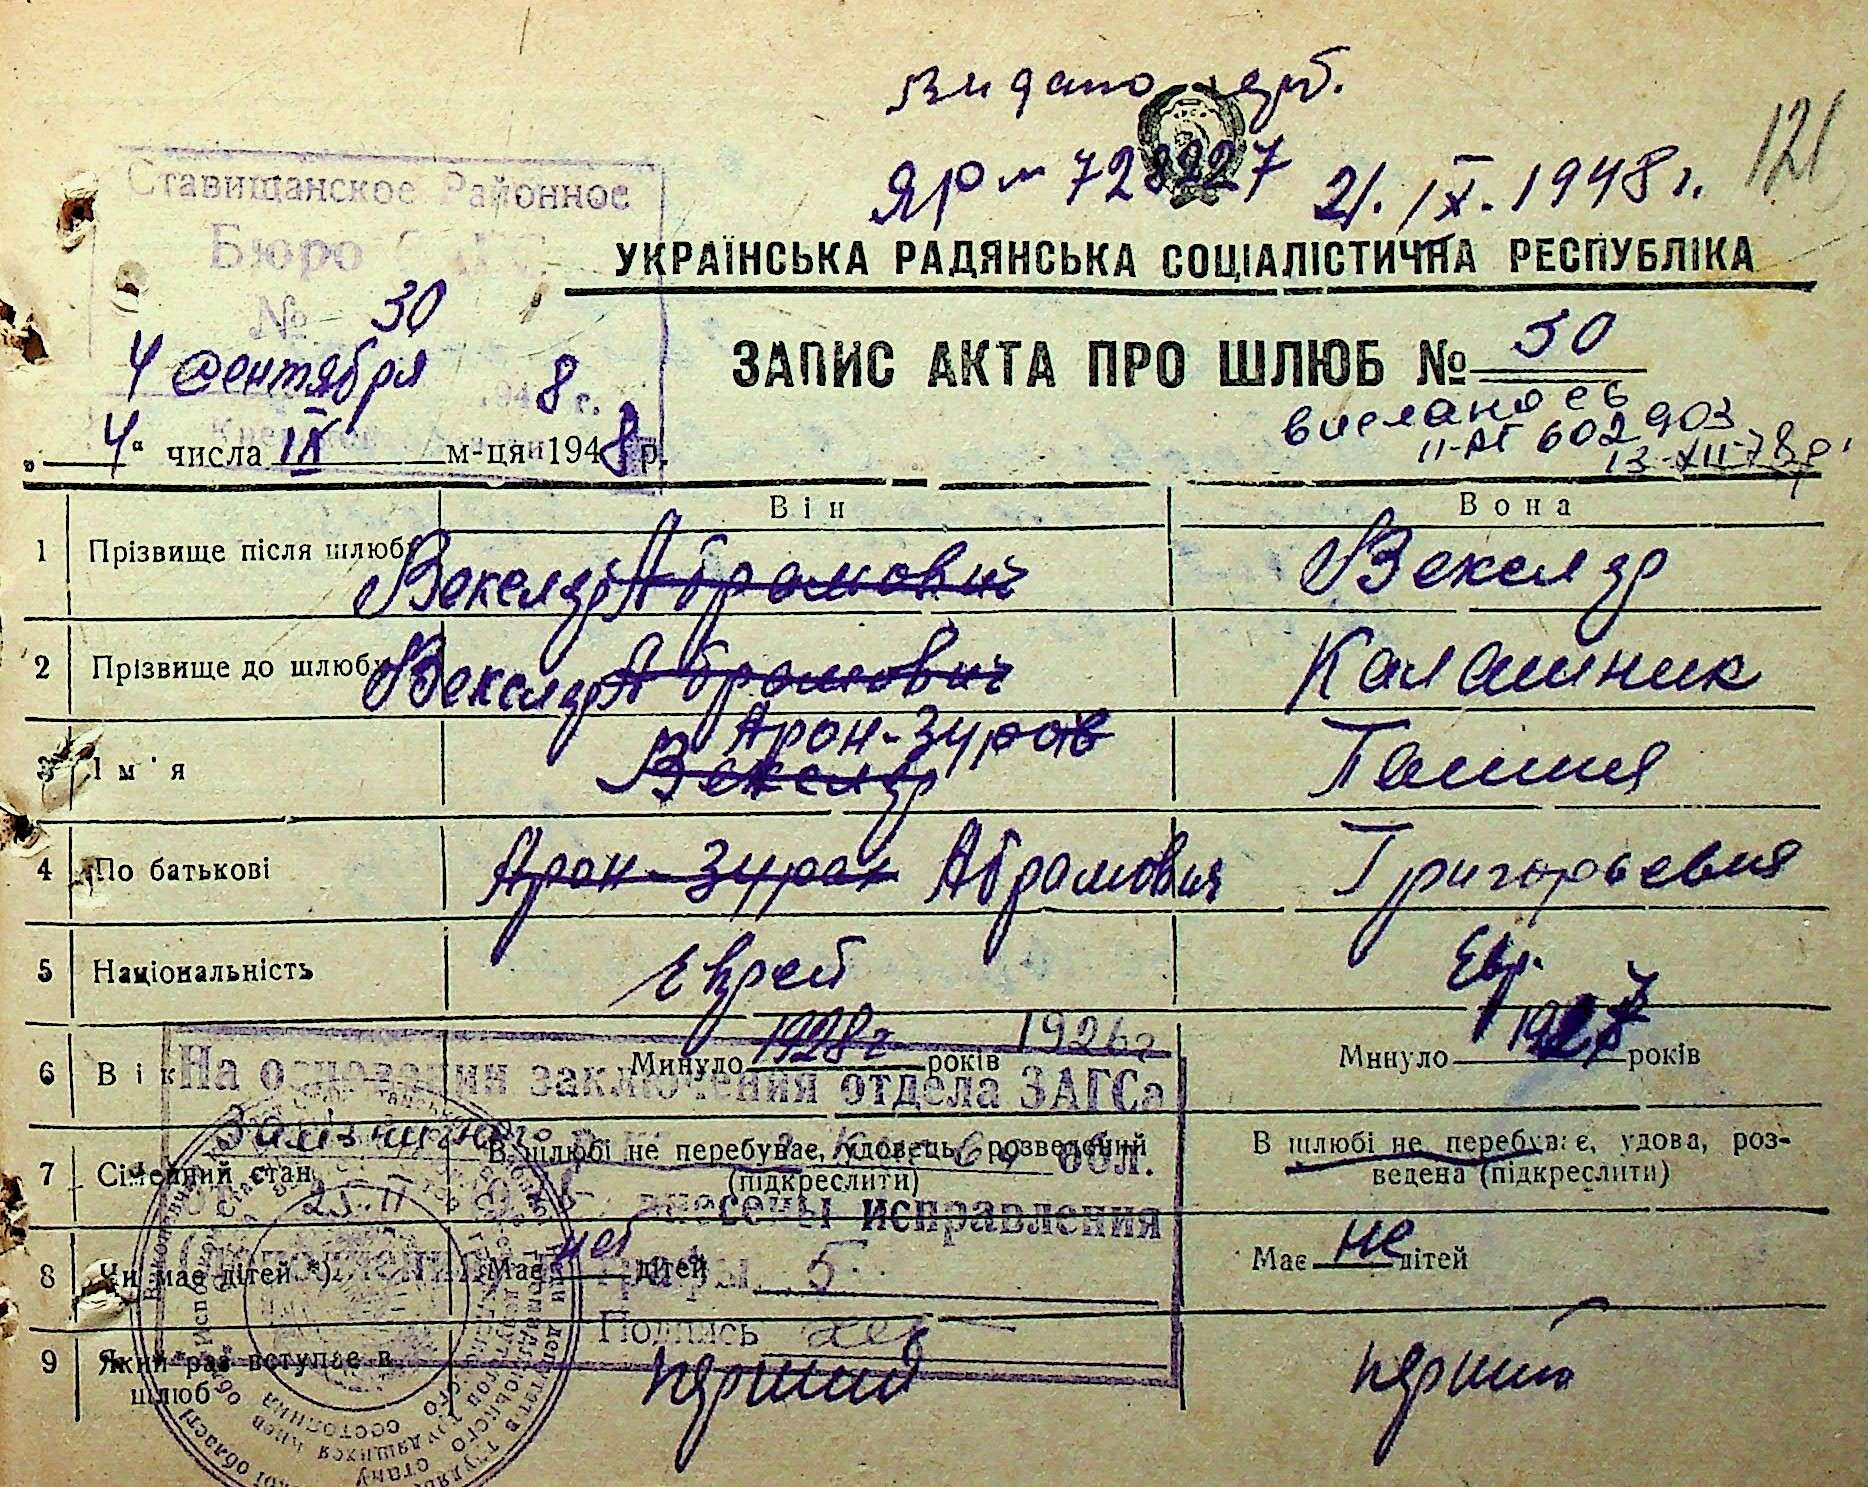 видано дуб.
ЯР № 728227 21. IX. 1948 г. 121
Ставищанское Районное
Бюро
№ 30
4 Сентября 1948 г.
УКРАЇНСЬКА РАДЯНСЬКА СОЦІАЛІСТИЧНА РЕСПУБЛІКА
ЗАПИС АКТА ПРО ШЛЮБ № 30
вислано св
II-АГ 602903
13-XII-78 р.
„4“ числа IX м-ця 1948 р.
Він Вона
1 Прізвище після шлюбу Векслер Абрамович Векслер
2 Прізвище до шлюбу Векслер Абрамович Калашник
3 Ім'я Арон-Зурав Векслер
4 По батькові Арон-Зурах Абрамович Григорьевна
5 Національність Еврей Евр.
6 Вік Минуло 1928 г років 1926 г Минуло 1927 років
На основании заключения отдела ЗАГСа
Залізничного
7 Сімейний стан В шлюбі не перебуває, удовець, розведений (підкреслити) В шлюбі не перебуває, удова, розведена (підкреслити)
обл.
внесены исправления
8 Чи має дітей *) Має нет дітей Має не дітей
графы 5
Подпись
9 Який раз вступає в шлюб перший перший